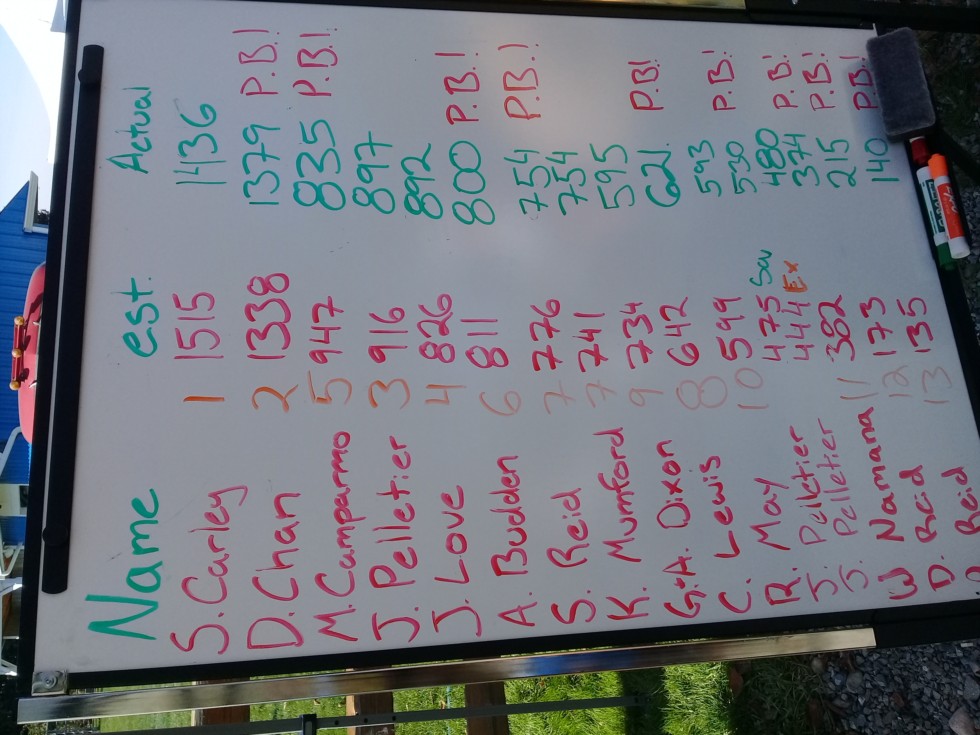 Name est. Actual
S. Carley 1 1515 1436
D. Chan 2 1338 1379 P.B!
M. Camparmo 5 947 835 P.B.!
J. Pelletier 3 916 897
J. Love 4 826 892
A. Budden 6 811 800 P.B.!
S. Reid 7 776 754 P.B.!
K. Mumford 7 741 754
G.+A. Dixon 9 734 595
C. Lewis 8 642 621 P.B!
R. May 10 599 593
J. Pelletier 475 Sav 530 P.B.!
S. Pelletier 444 Ex 480
W Namana 11 382 374 P.B.!
D. Reid 12 173 215 P.B.!
Reid 13 135 140 P.B.!